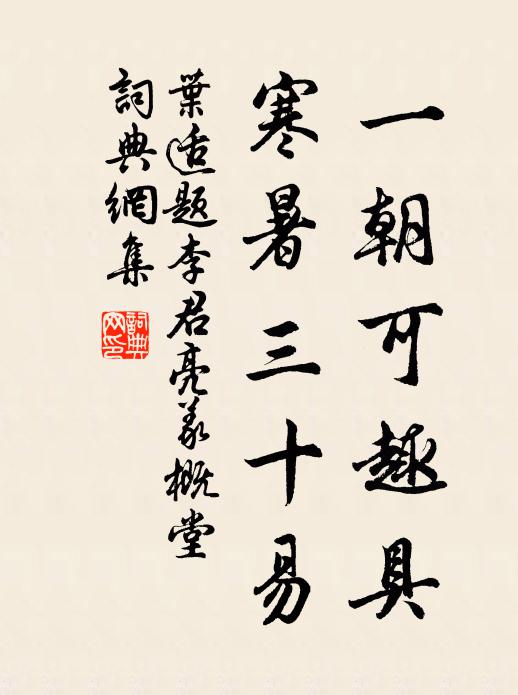 一朝可趣具
寒暑三十易
葉适题李君亮義概堂
詞典網集
詞典網印